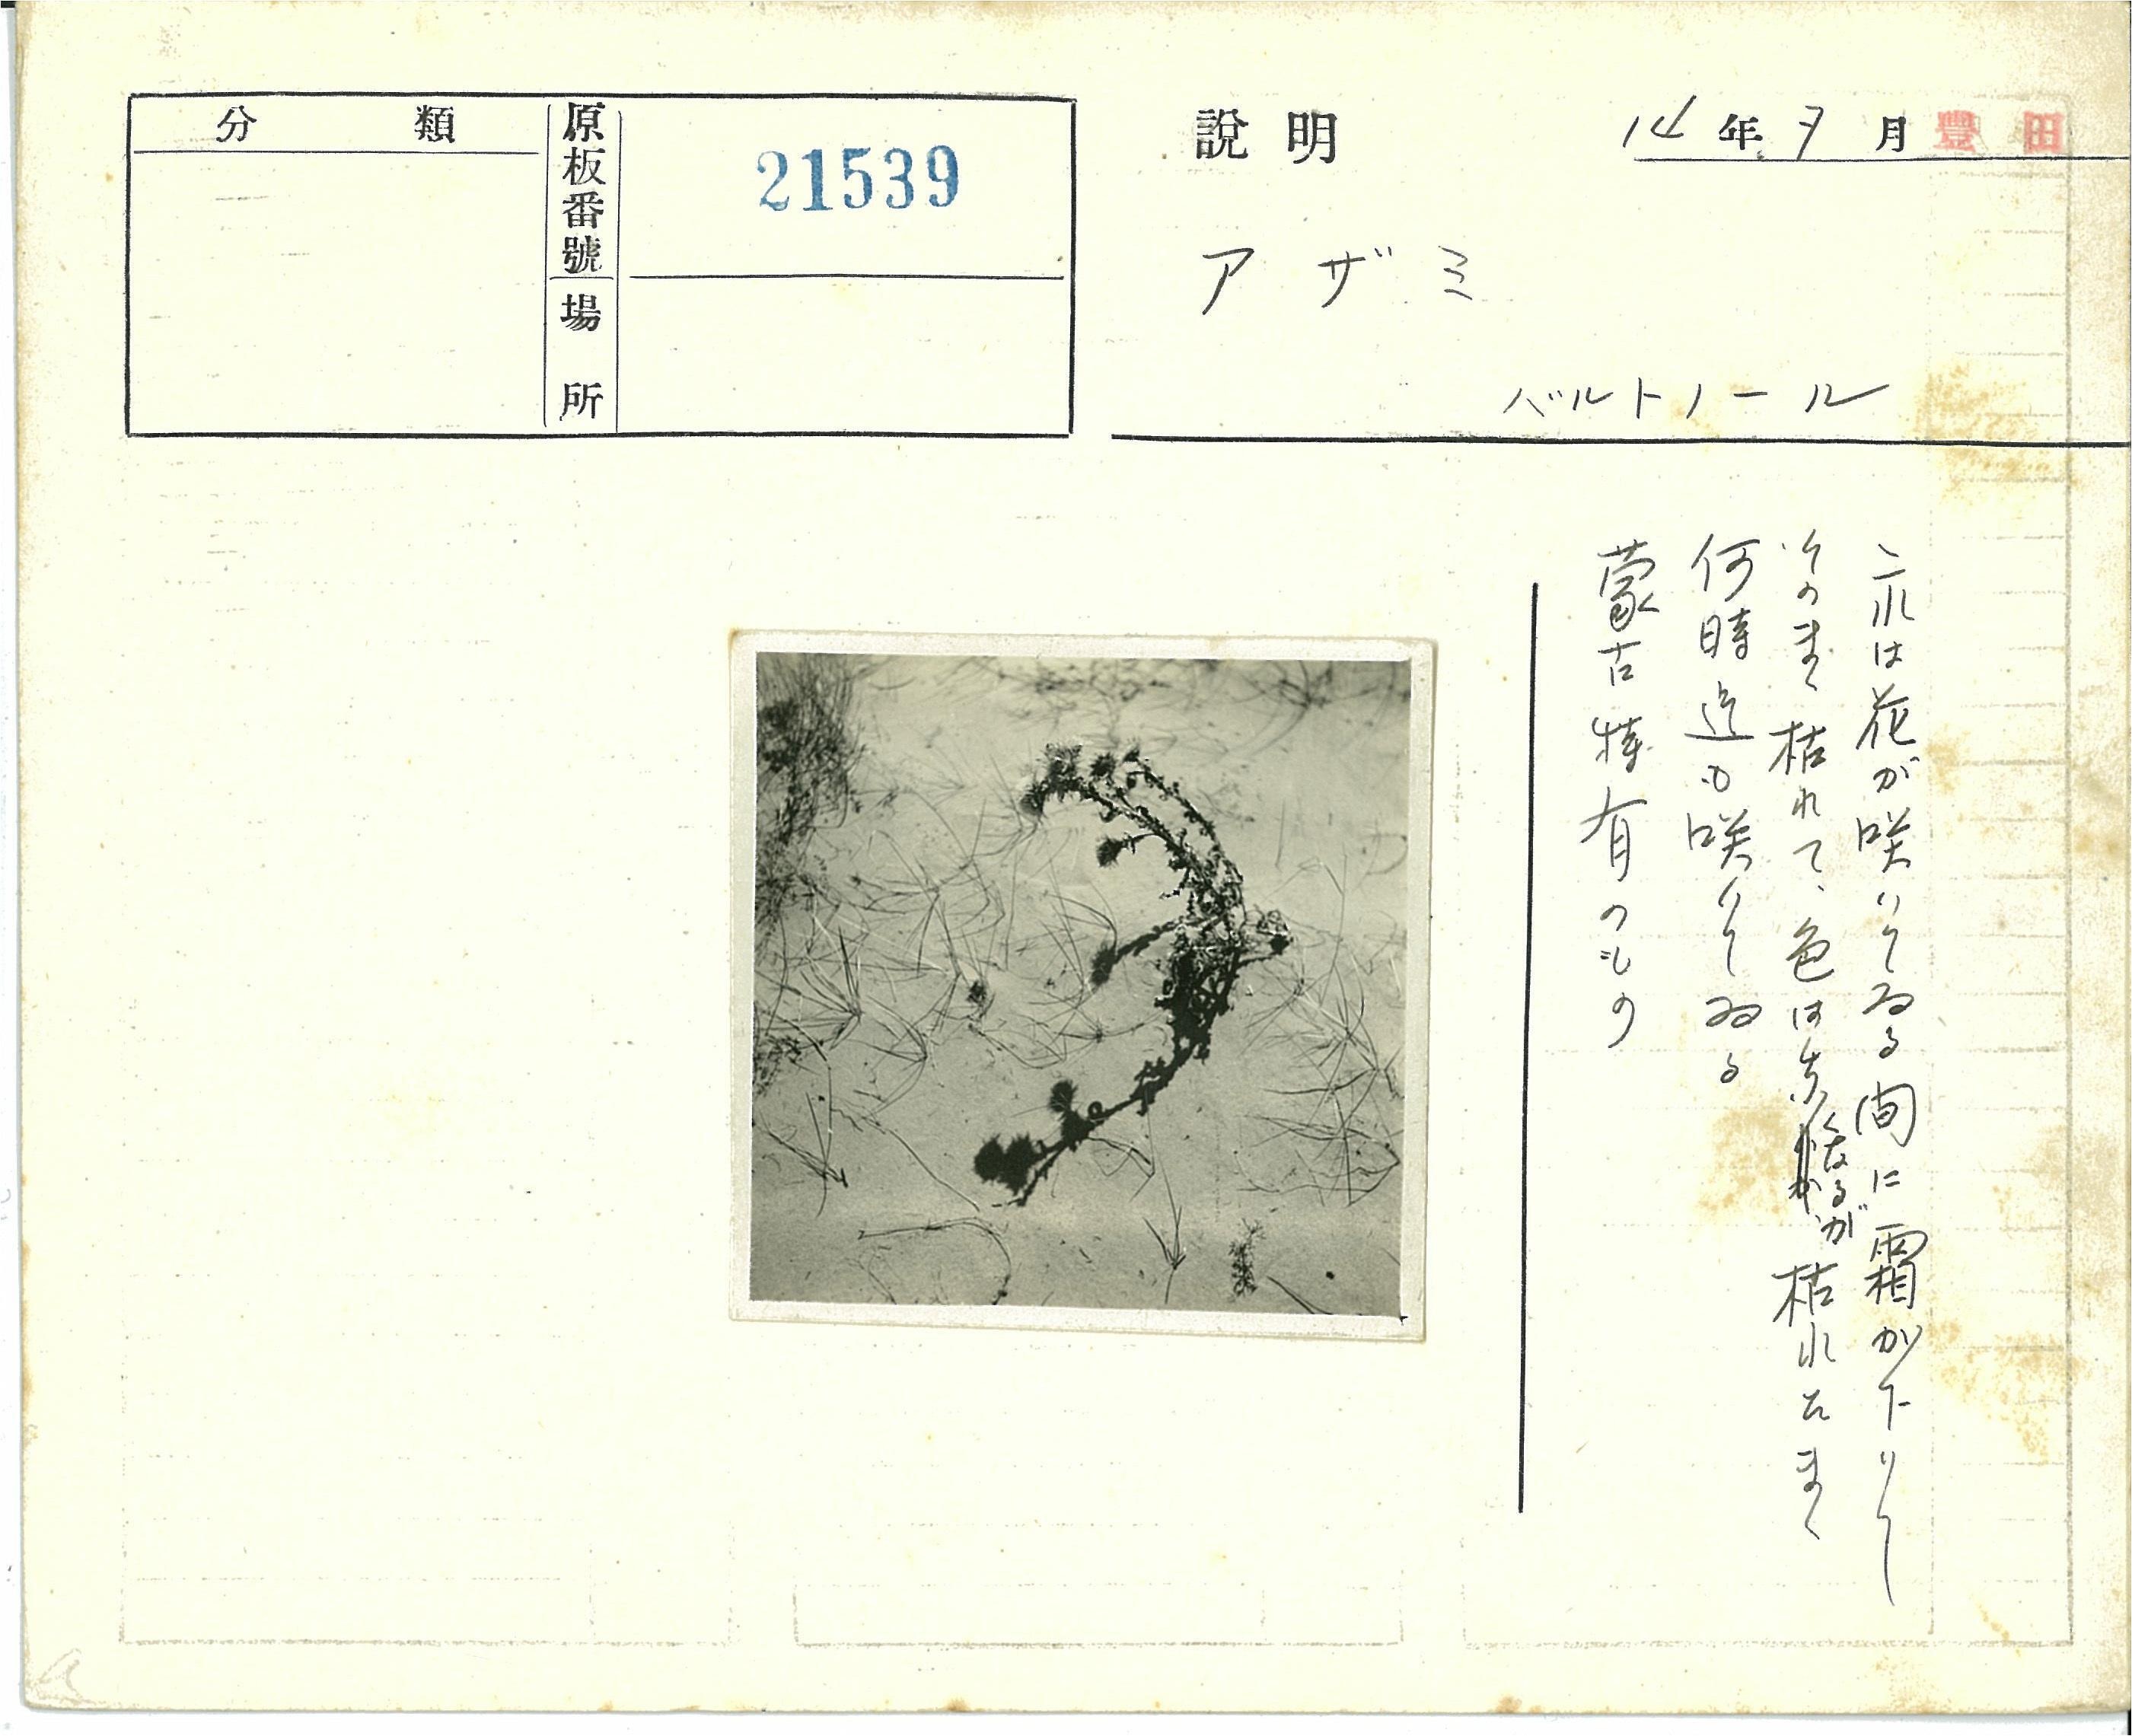 分類
原板番號
21539
場所
說明
14年9月
豐田
アザミ
バルトノール
これは花が咲いてゐる間に霜が下りて
そのまゝ枯れて、色は失くなるが枯れたまゝ
何時迄も咲いてゐる
蒙古特有のもの